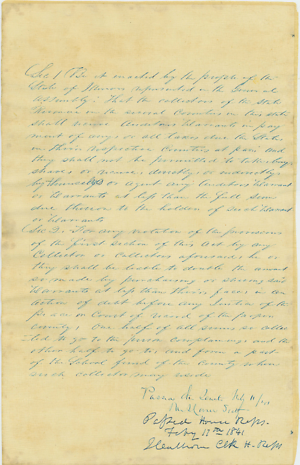 Sec 1 Be it enacted by the people of the
State of Illinois represented in the General
Assembly: That the collectors of the State
Revenue in the several Counties in this state
shall receive Auditors Warrants in pay
ment of any or all taxes due the State
in their respective Counties at par: and
they shall not be permitted to
or directly or indirectly
by themselves or agent any Auditors Warrant
or Warrants at less than the full sum
due thereon to the holder of such Warrant
or Warrants
Sec 2. For any violation of the provisions
of the first section of this Act by any
Collector or Collectors aforesaid, he or
they shall be liable to double the amount
so made by purchasing or
Warrants at less than their face, in an
action of debt before any Justice of the
peace or Court of record of the proper
county; One half of all sums so collec
ted to go to the person complaining and the
other half to go to and form a part
of the School fund of the County where
such collector may reside
Passed the
Passed House Reps.
Feby 13th 1841
Clk H. Reps